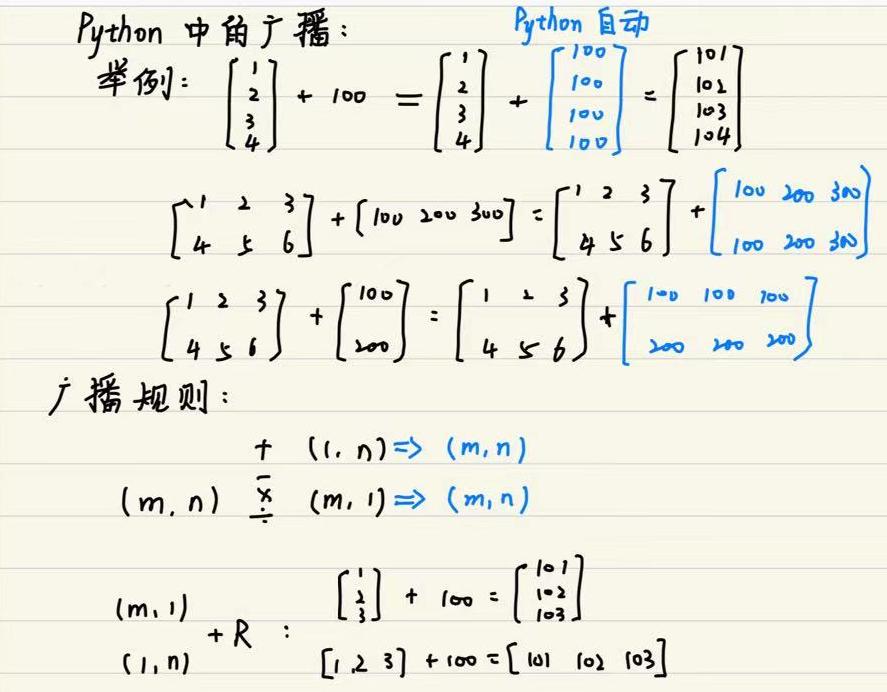 Python 中的广播： Python 自动
举例： [1 2 3 4] + 100 = [1 2 3 4] + [100 100 100 100] = [101 102 103 104]
[1 2 3 4 5 6] + [100 200 300] = [1 2 3 4 5 6] + [100 200 300 100 200 300]
[1 2 3 4 5 6] + [100 200] = [1 2 3 4 5 6] + [100 100 100 200 200 200]
广播规则：
+ (1, n) => (m, n)
(m, n) - × ÷ (m, 1) => (m, n)
(m, 1) [1 2 3] + 100 = [101 102 103]
+ R :
(1, n) [1, 2 3] + 100 = [101 102 103]